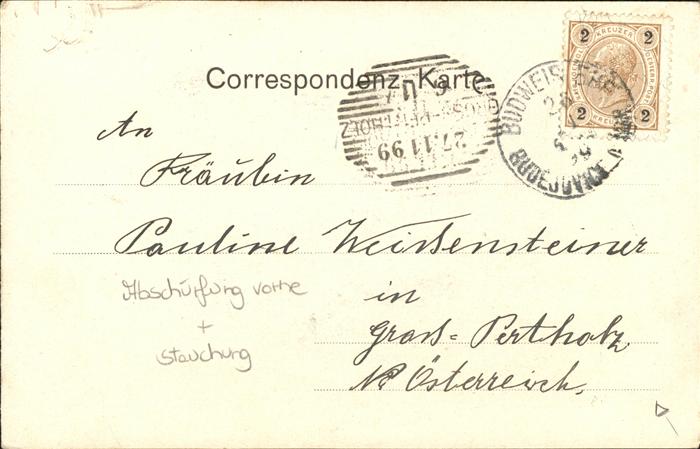 Correspondenz-Karte
2 KREUZER 2
2 KREUZER 2
BUDWEIS
BUDĚJOVICE
GROSS-PERTHOLZ
27.11.99
An
Fräulein
Pauline Weissensteiner
in
Gross-Pertholz
N Österreich.
Abschürfung vorne
+
Stauchung